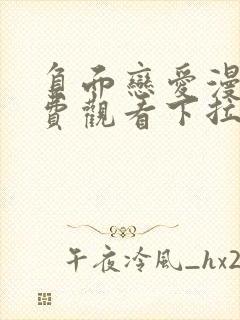 負而戀愛漫
費觀看下拉
午夜冷風_hx2